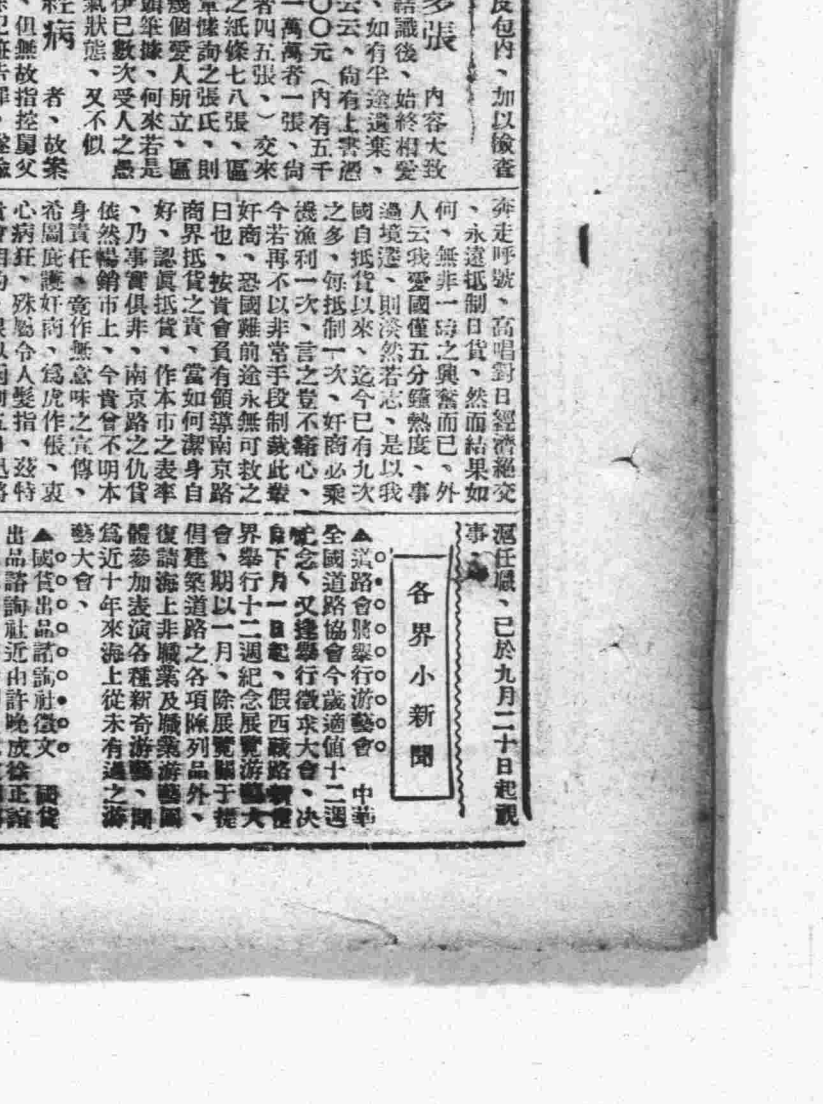 皮包內、加以檢查
多張
內容大致
結識後、始終相愛
、如有半途遺棄、
云云、尙有上書憑
〇〇元（內有五千
一萬萬者一張、尙
者四五張、）交來
之紙條七八張、區
單據詢之張氏、則
幾個愛人所立、區
頭筆據、何來若是
伊已數次受人之愚
氣狀態、又不似
病
者、故案
、但無故指控舅父
奔走呼號、高唱對日經濟絕交
、永遠抵制日貨、然而結果如
何、無非一時之興奮而已、外
人云我愛國僅五分鐘熱度、事
過境遷、則淡然若忘、是以我
國自抵貨以來、迄今已有九次
之多、每抵制一次、奸商必乘
機漁利一次、言之豈不痛心、
今若再不以非常手段制裁此輩
奸商、恐國難前途永無可救之
日也、按貴會負有領導南京路
商界抵貨之責、當如何潔身自
好、認眞抵貨、作本市之表率
、乃事實俱非、南京路之仇貨
依然暢銷市上、今貴曾不明本
身責任、竟作無意味之宣傳、
希圖庇護奸商、爲虎作倀、衷
心病狂、殊屬令人髮指、茲特
滬任職、已於九月二十日起視
事、
各界小新聞
▲道路會將舉行游藝會　中華
全國道路協會今歲適値十二週
紀念、又逢舉行徵求大會、决
自下月一日起、假西藏路
界舉行十二週紀念展覽游藝大
會、期以一月、除展覽關于提
倡建築道路之各項陳列品外、
復請海上非職業及職業游藝團
體參加表演各種新奇游藝、聞
爲近十年來海上從未有過之游
藝大會、
▲國貨出品諮詢社徵文　國貨
出品諮詢社近由許晚成徐正